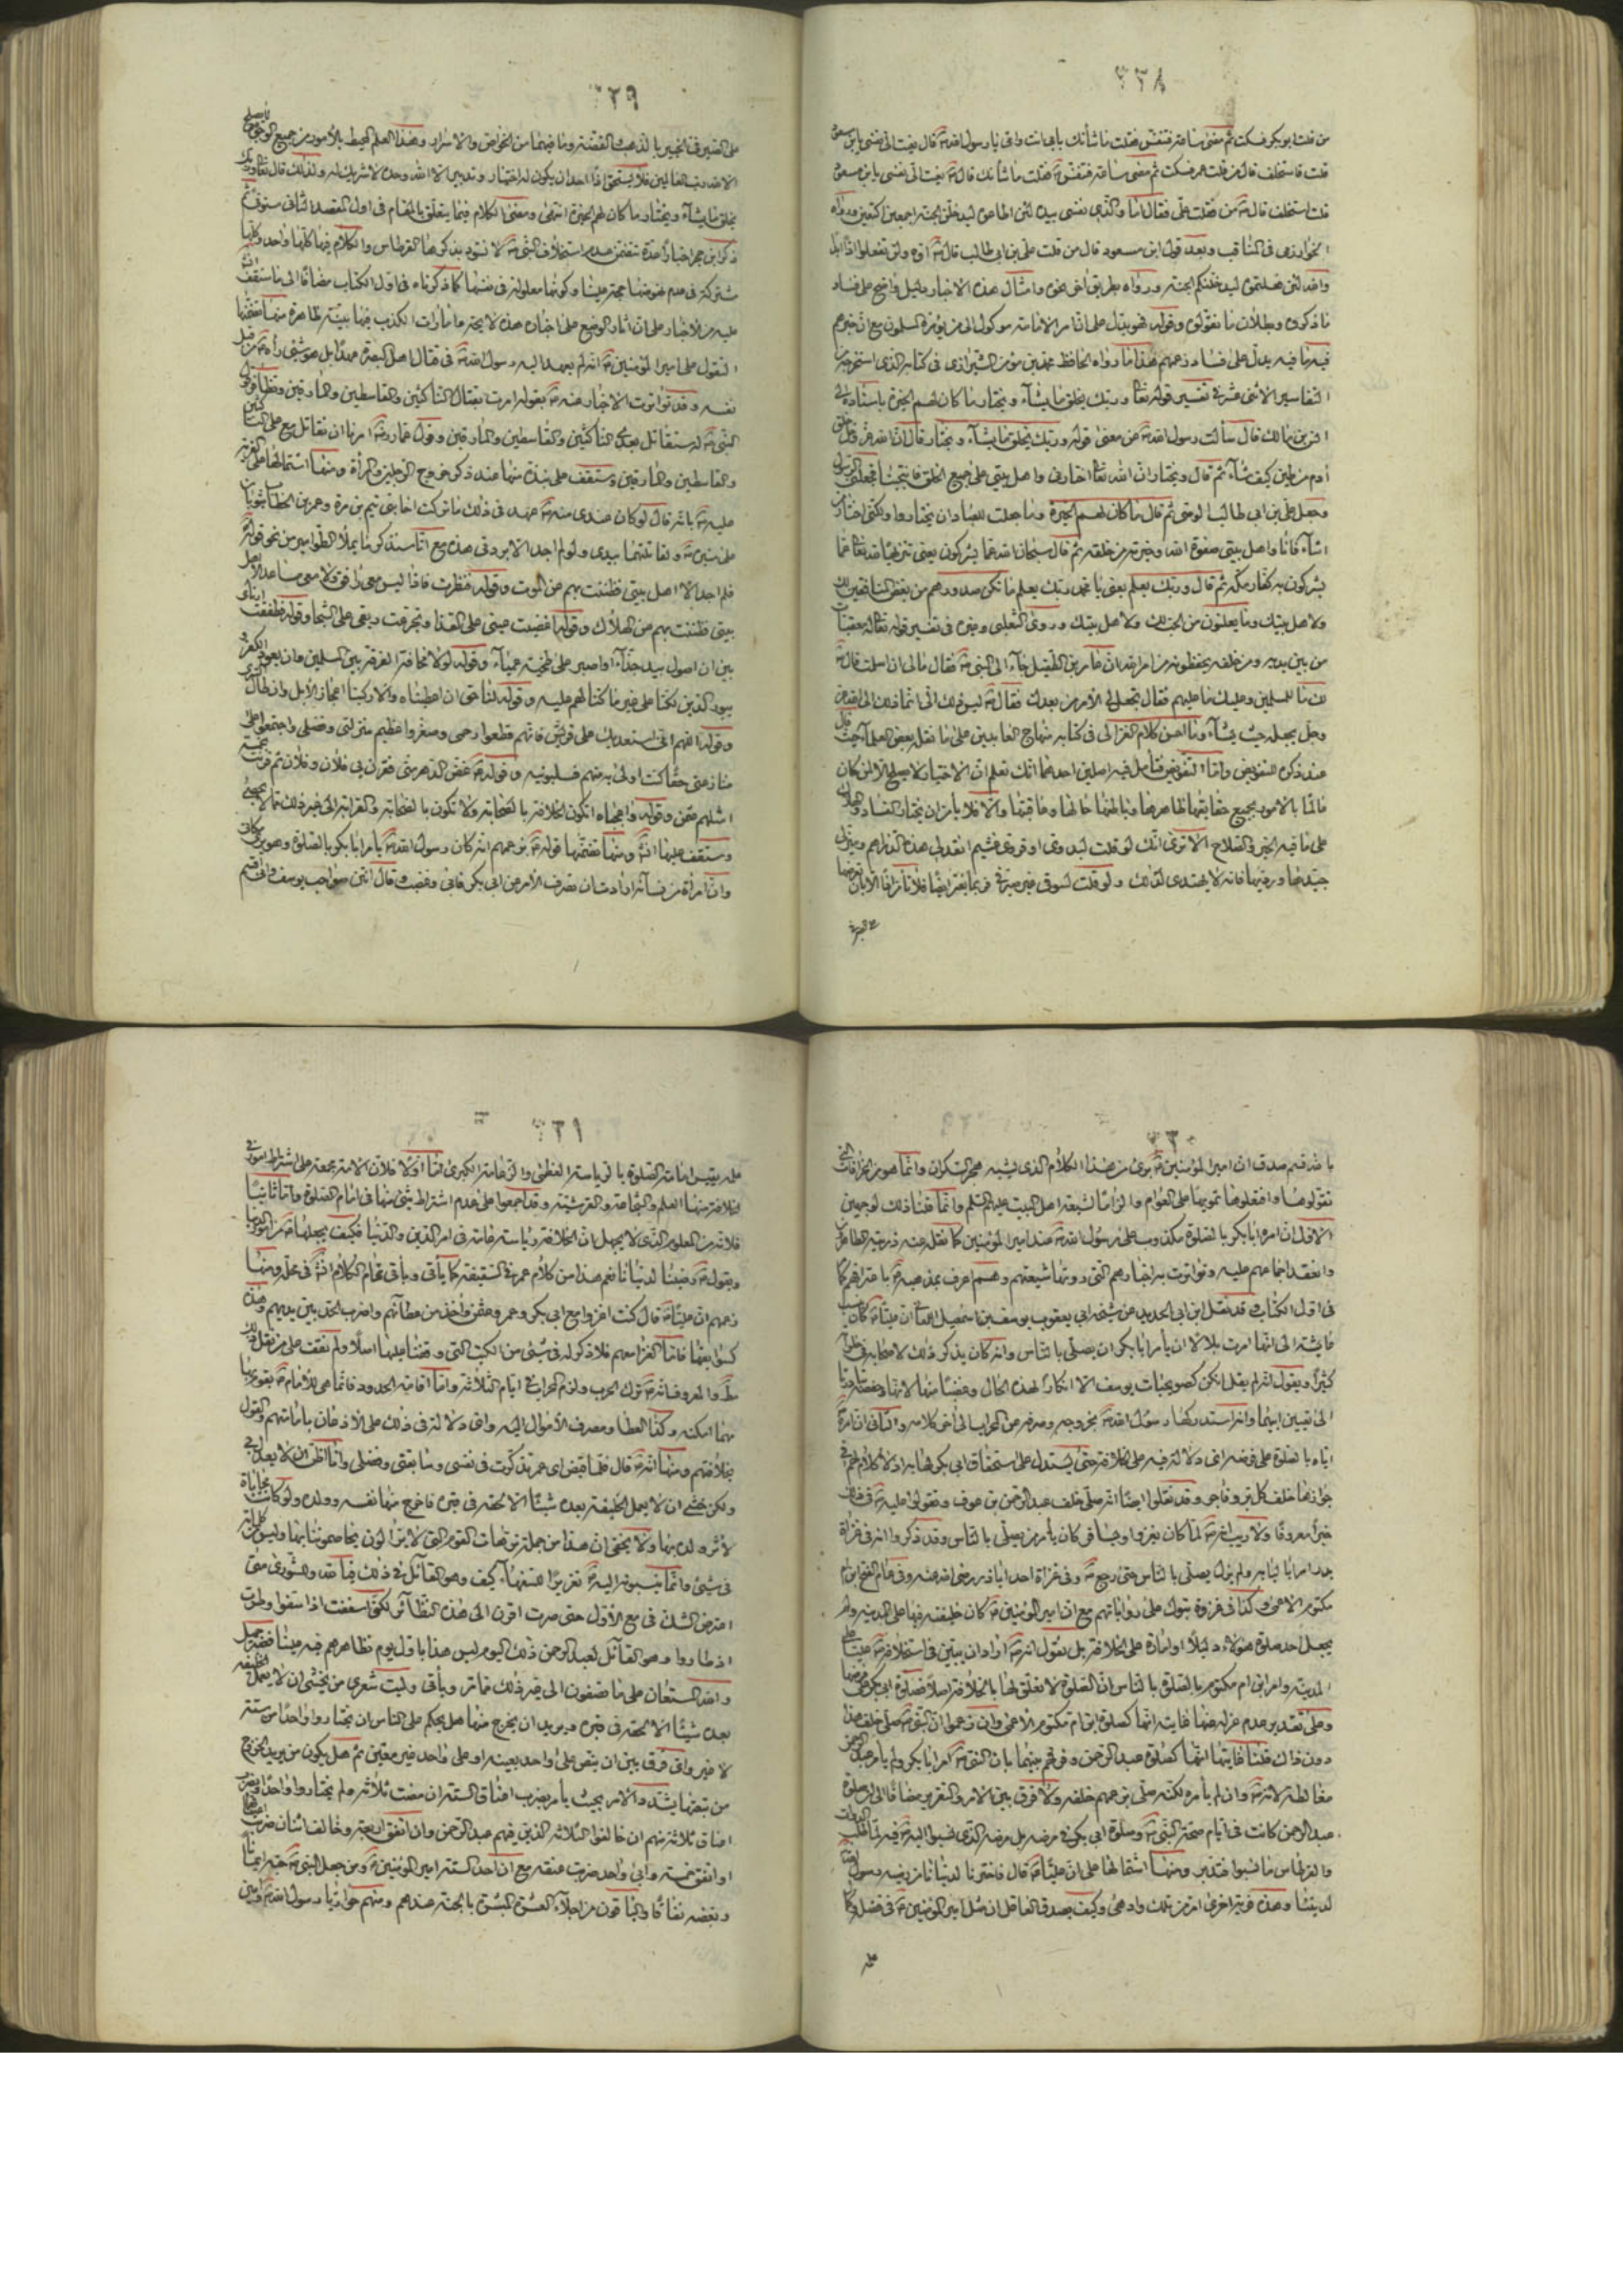 ٣٢٨
من قلت ابو بكر فسكت ثم مضى ساعة فتنفس فقلت ما شأنك بابي انت وامي يا رسول الله ص قال نعيت الي نفسي يابن مسعود
قلت فاستخلف قال من قلت عمر فسكت ثم مضى ساعة فتنفس فقلت ما شأنك قال نعيت الي نفسي يابن مسعود
قلت استخلف قال من قلت علي فقال اما والذي نفسي بيده لئن اطاعوه ليدخلن الجنة اجمعين اكتعين ورواه
الخوارزمي في المناقب وبعد قول ابن مسعود قال من قلت علي بن ابي طالب قال اوه ولن تفعلوا اذا ابدا
والله لئن فعلتموه ليدخلنكم الجنة ورواه بطريق اخر نحوه وامثال هذه الاخبار دليل واضح على فساد
ما ذكروه وبطلان ما تقولوه وقوله فهو يدل على ان امر الامامة موكول الى من يؤمره المسلمون مع ان خبرهم
فيه ما فيه يدل على فساد زعمهم هذا ما رواه الحافظ محمد بن مؤمن الشيرازي في كتابه الذي استخرجه من
التفاسير الاثنى عشر في تفسير قوله تعا وربك يخلق ما يشآء ويختار ما كان لهم الخيرة باسناده الى
انس بن مالك قال سألت رسول الله ص عن معنى قوله وربك يخلق ما يشآء ويختار قال ان الله عز وجل خلق
آدم من طين كيف شآء ثم قال ويختار ان الله تعا اختارني واهل بيتي على جميع الخلق فانتجبنا فجعلني الرسول
وجعل علي بن ابي طالب الوصي ثم قال ما كان لهم الخيرة وما جعلت للعباد ان يختاروا ولكني اختار من
اشآء فانا واهل بيتي صفوة الله وخيرته من خلقه ثم قال سبحان الله عما يشركون يعني تنزيها لله تعا عما
يشركون به كفار مكة ثم قال وربك يعلم يعني يا محمد ربك يعلم ما تكن صدورهم من بغض المنافقين لك
ولاهل بيتك وما يعلنون من الحب لك ولاهل بيتك وروى الثعلبي وغيره في تفسير قوله تعا له معقبات
من بين يديه ومن خلفه يحفظونه من امر الله ان عامر بن الطفيل جآء الى النبي ص فقال مالي ان اسلمت قال
لك ما للمسلمين وعليك ما عليهم فقال تجعل لي الامر من بعدك فقال ليس ذلك الي انما ذلك الى الله عز
وجل يجعله حيث يشآء وما احسن كلام الغزالي في كتابه منهاج العابدين على ما نقل بعض العلمآء حيث قال
عند ذكره التفويض واما التفويض فتأمل فيه اصلين احدهما انك تعلم ان الاختيار لا يصلح الا لمن كان
عالما بالامور بجميع حقايقها ظاهرها وباطنها حالها وعاقبتها والا فلا يأمن ان يختار الفساد والهلاك
على ما فيه الخير والصلاح الا ترى انك لو قلت لبدوي او قروي
جيدها ورديها فانه لا يهتدي لذلك ولو قلت لسوقي غير صيرفي فربما يعسر ايضا فلا تأمن الا بان تعرضها
على الصيرفي
٣٢٩
على الصيرفي الخبير بالذهب والفضة وما فيهما من الخواص والاسرار وهذا العلم المحيط بالأمور من جميع الوجوه لا يصلح
الا لله رب العالمين فلا يستحق اذا احد ان يكون له اختيار وتدبير الا الله وحده لا شريك له ولذلك قال تعا وربك
يخلق ما يشآء ويختار ما كان لهم الخيرة انتهى ومضى الكلام فيما يتعلق بالمقام في اول المقصد الثاني
ذكر ابن حجر اخبارا عدة تتضمن عدم استخلاف النبي ص لا نسود بذكرها القرطاس والكلام فيها كلها واحد وكلها
مشتركة في عدم نهوضها حجة علينا وكونها معلولة في نفسها كما ذكرناه في اول الكتاب مضافا الى ما ستقف
عليه من الاخبار على ان اثار الوضع على اخباره هذه لايحة وامارات الكذب فيها بينة ظاهرة منها تضمنها
القول على امير المؤمنين ع انه لم يعهد اليه رسول الله ص في قتال اهل البصرة عهدا بل هو شيء رآه من قبل
نفسه وقد تواترت الاخبار عنه ع بقوله امرت بقتال الناكثين والقاسطين والمارقين
النبي ص له ستقاتل بعدي الناكثين والقاسطين والمارقين وقول عمار امرنا ان نقاتل مع علي الناكثين
والقاسطين والمارقين وستقف على نبذة منها عند ذكر خروج الرجلين والمرأة ومنها اشتمالها على الفرية
عليه ع بانه قال لو كان عندي من النبي ص عهد في ذلك ما تركت اخا بني تيم بن مرة وعمر بن الخطاب يثوبان
على منبره ولقاتلتهما بيدي ولو لم اجد الا بردتي هذه مع انا سنذكر ما يملأ الطوامير من نحو قوله
فلم اجد الا اهل بيتي فظننت بهم عن الموت وقوله فنظرت فاذا ليس معي رافد ولا معي مساعد الا اهل
بيتي فظننت بهم عن الهلاك وقوله فاغضيت عيني على القذا وتجرعت ريقي على الشجا وقوله فطفقت ارتأي
بين ان اصول بيد جذآء او اصبر على طخية عميآء وقوله لولا مخافة الفرقة بين المسلمين وان يعود الكفر
وقوله لنا حق ان اعطيناه والا ركبنا اعجاز الابل وان طال السرى
وقوله اللهم اني استعديك على قريش فانهم قطعوا رحمي وصغروا عظيم منزلتي وفضلي واجتمعوا على
منازعتي حقا كنت اولى به منهم فسلبونيه وقوله غض الدهر مني فقرن بي فلان وفلان ثم قرنت
وقوله واعجباه اتكون الخلافة بالصحابة ولا تكون بالصحابة والقرابة الى غير ذلك مما لا يحصى
وستقف عليها انش ومنها تضمنها قوله ع بزعمهم انه كان رسول الله ص يأمر ابا بكر بالصلوة وهو يرى مكاني
وان امرأة من نسآئه ارادت ان تصرف الامر عن ابي بكر فابى وغضب وقال انتن صواحب يوسف
٣٣٠
بالله قسم صدق ان امير المؤمنين ع بريء من هذا الكلام الذي يشبه هجر السكران وانما هو من الخرافات التي
تقولوها وافتعلوها تمويها على العوام والزاما لشيعة اهل البيت عليهم السلم وانما قلنا ذلك لوجهين
الاول ان امره ابا بكر بالصلوة مكذوب على رسول الله ص عند امير المؤمنين كما نقله عنه ذريته الطاهرين
وانعقد اجماعهم عليه وتواترت به اخبارهم التي دونها شيعتهم وهم اعرف بمذهبه باعترافهم كما
في اول الكتاب وقد نقل ابن ابي الحديد عن شيخه ابي يعقوب يوسف بن اسمعيل اللمعاني ان عليا ع كان ينسب
عايشة الى انها امرت بلالا ان يأمر ابا بكر ان يصلي بالناس وانه كان يذكر ذلك لاصحابه في خلواته
كثيرا ويقول انه لم يقل انكن كصويحبات يوسف الا انكارا لهذه الحال وغضبا منها لانها وحفصة تبادرتا
الى تعيين ابيهما وانه استدركها رسول الله ص بخروجه وصرفه عن المحراب الى آخر كلامه والثاني ان امره
اياه بالصلوة على فرضه اي دلالة فيه على الخلافة حتى يستدل على استحقاق ابي بكر لها به اذ لا كلام لهم في
جوازها خلف كل بر وفاجر وقد نقلوا ايضا انه صلى خلف عبد الرحمن بن عوف
خبرا معروفا ولا ريب انه ص لما كان يغزو او يسافر كان يأمر من يصلي بالناس وقد ذكروا انه في غزاة
بدر امر ابا لبابة ولم يزل يصلي بالناس حتى رجع ص وفي غزاة احد اباذر رضي الله عنه وفي عام الفتح ابن ام
مكتوم الاعمى وكذا في غزوة تبوك على رواياتهم مع ان امير المؤمنين ع كان خليفته فيها على المدينة ولم
يجعل احد صلوة هؤلاء دليلا او امارة على الخلافة بل نقول انه ص اراد ان يبين في استخلافه عليا على
المدينة وامر ابن ام مكتوم بالصلوة بالناس ان الصلوة لا تعلق لها بالخلافة اصلا فصلوة ابي بكر على فرضها
وعلى تقدير عدم عزله عنها غايته انها كصلوة ابن ام مكتوم الاعمى وان زعموا ان النبي ص صلى خلفه هذا
دون ذاك قلنا غايتها انها كصلوة عبد الرحمن وفرقهم بينهما بان النبي ص امر ابا بكر ولم يأمر عبد الرحمن
مغالطة لانه ص وان لم يأمره لكنه صلى بزعمهم خلفه ولا فرق بين الامر والتقرير مضافا الى ان صلوة
عبد الرحمن كانت في ايام صحة النبي ص وصلوة ابي بكر في مرضه بل مرضه الذي نسبوا اليه فيه لما طلب الدواة
والقرطاس ما نسبوا فتدبر ومنها اشتمالها على ان عليا ع قال فاخترنا لدنيانا من رضيه رسول الله
لديننا وهذه فرية اخرى امر من تلك وادهى وكيف يصدق العاقل ان مثل امير المؤمنين ع في فضله وكماله
علمه
٣٣١
علمه يقيس امامة الصلوة بالرياسة العظمى والزعامة الكبرى اما اولا فلان الامة مجمعة على اشتراط امور في
الخلافة منها العلم والشجاعة والقرشية وقد اجمعوا على عدم اشتراط شيء منها في امام الصلوة واما ثانيا
فلانه من المعلوم الذي لا يجهل ان الخلافة رياسة عامة في امر الدين والدنيا فكيف يجعلها ع من امور الدنيا
ويقول رضينا لدنيانا نعم هذا من كلام عمر في السقيفة كما يأتي ويأتي تمام الكلام انش في محله ومنها
زعمهم ان عليا ع قال كنت اغزو مع ابي بكر وعمر وعثمن وآخذ من عطائهم واضرب الحد بين يديهم وهذه
كسوابقها فاما الغزا معهم فلا ذكر له في شيء من الكتب التي وقفنا عليها اصلا ولم نقف على من نقل ذلك
قط والمعروف انه ع ترك الحرب ولزم المحراب في ايام الثلاثة واما اقامة الحدود فانما هي للامام ع يقوم بها
مهما امكنه وكذا العطا ومصرف الأموال اليه واي دلالة في ذلك على الاذعان بامامتهم والقول
بخلافتهم ومنها انه ع قال فلما قبض اي عمر تذكرت في نفسي وسابقتي وفضلي وانا اظن ان لا يعدل بي
ولكن خشي ان لا يعمل الخليفة بعده شيئا الا لحقه في قبره فاخرج منها نفسه وولده ولو كانت محاباة
لآثر ولده بها ولا يخفى ان هذا من جملة ترهات القوم التي لا يزالون يخاصموننا بها وليس كلامه
في شيء وانما ينسبونه اليه ع تغريرا للسفهآء كيف وهو القائل في ذلك فيا لله وللشورى متى
اعترض الشك في مع الأول حتى صرت اقرن الى هذه النظآئر لكني اسففت اذا سفوا وطرت
اذ طاروا وهو القائل لعبد الرحمن ذلك اليوم ليس هذا باول يوم تظاهرتم فيه علينا فصبر جميل
والله المستعان على ما تصفون الى غير ذلك مما مر ويأتي وليت شعري من يخشى ان لا يعمل الخليفة
بعده شيئا الا لحقه في قبره ويريد ان يخرج منها هل يحكم على الناس ان يختاروا واحدا من ستة
لا غير واي فرق بين ان ينص على واحد بعينه او على واحد غير معين ثم هل يكون من يريد الخروج
من تبعتها يشدد الامر بحيث يأمر بضرب اعناق الستة ان مضت ثلاثة ولم يختاروا واحدا
اعناق ثلاثة منهم ان خالفوا الثلاثة الذين فيهم عبد الرحمن وان اتفق اربعة وخالف اثنان ضرب اعناقهما
او اتفق خمسة وابى واحد ضربت عنقه مع ان احد الستة امير المؤمنين ع ومن جعل النبي ص حبه ايمانا
وبغضه نفاقا والباقون من اجلآء العشرة المبشرة بالجنة عندهم ومنهم حواري رسول الله ص